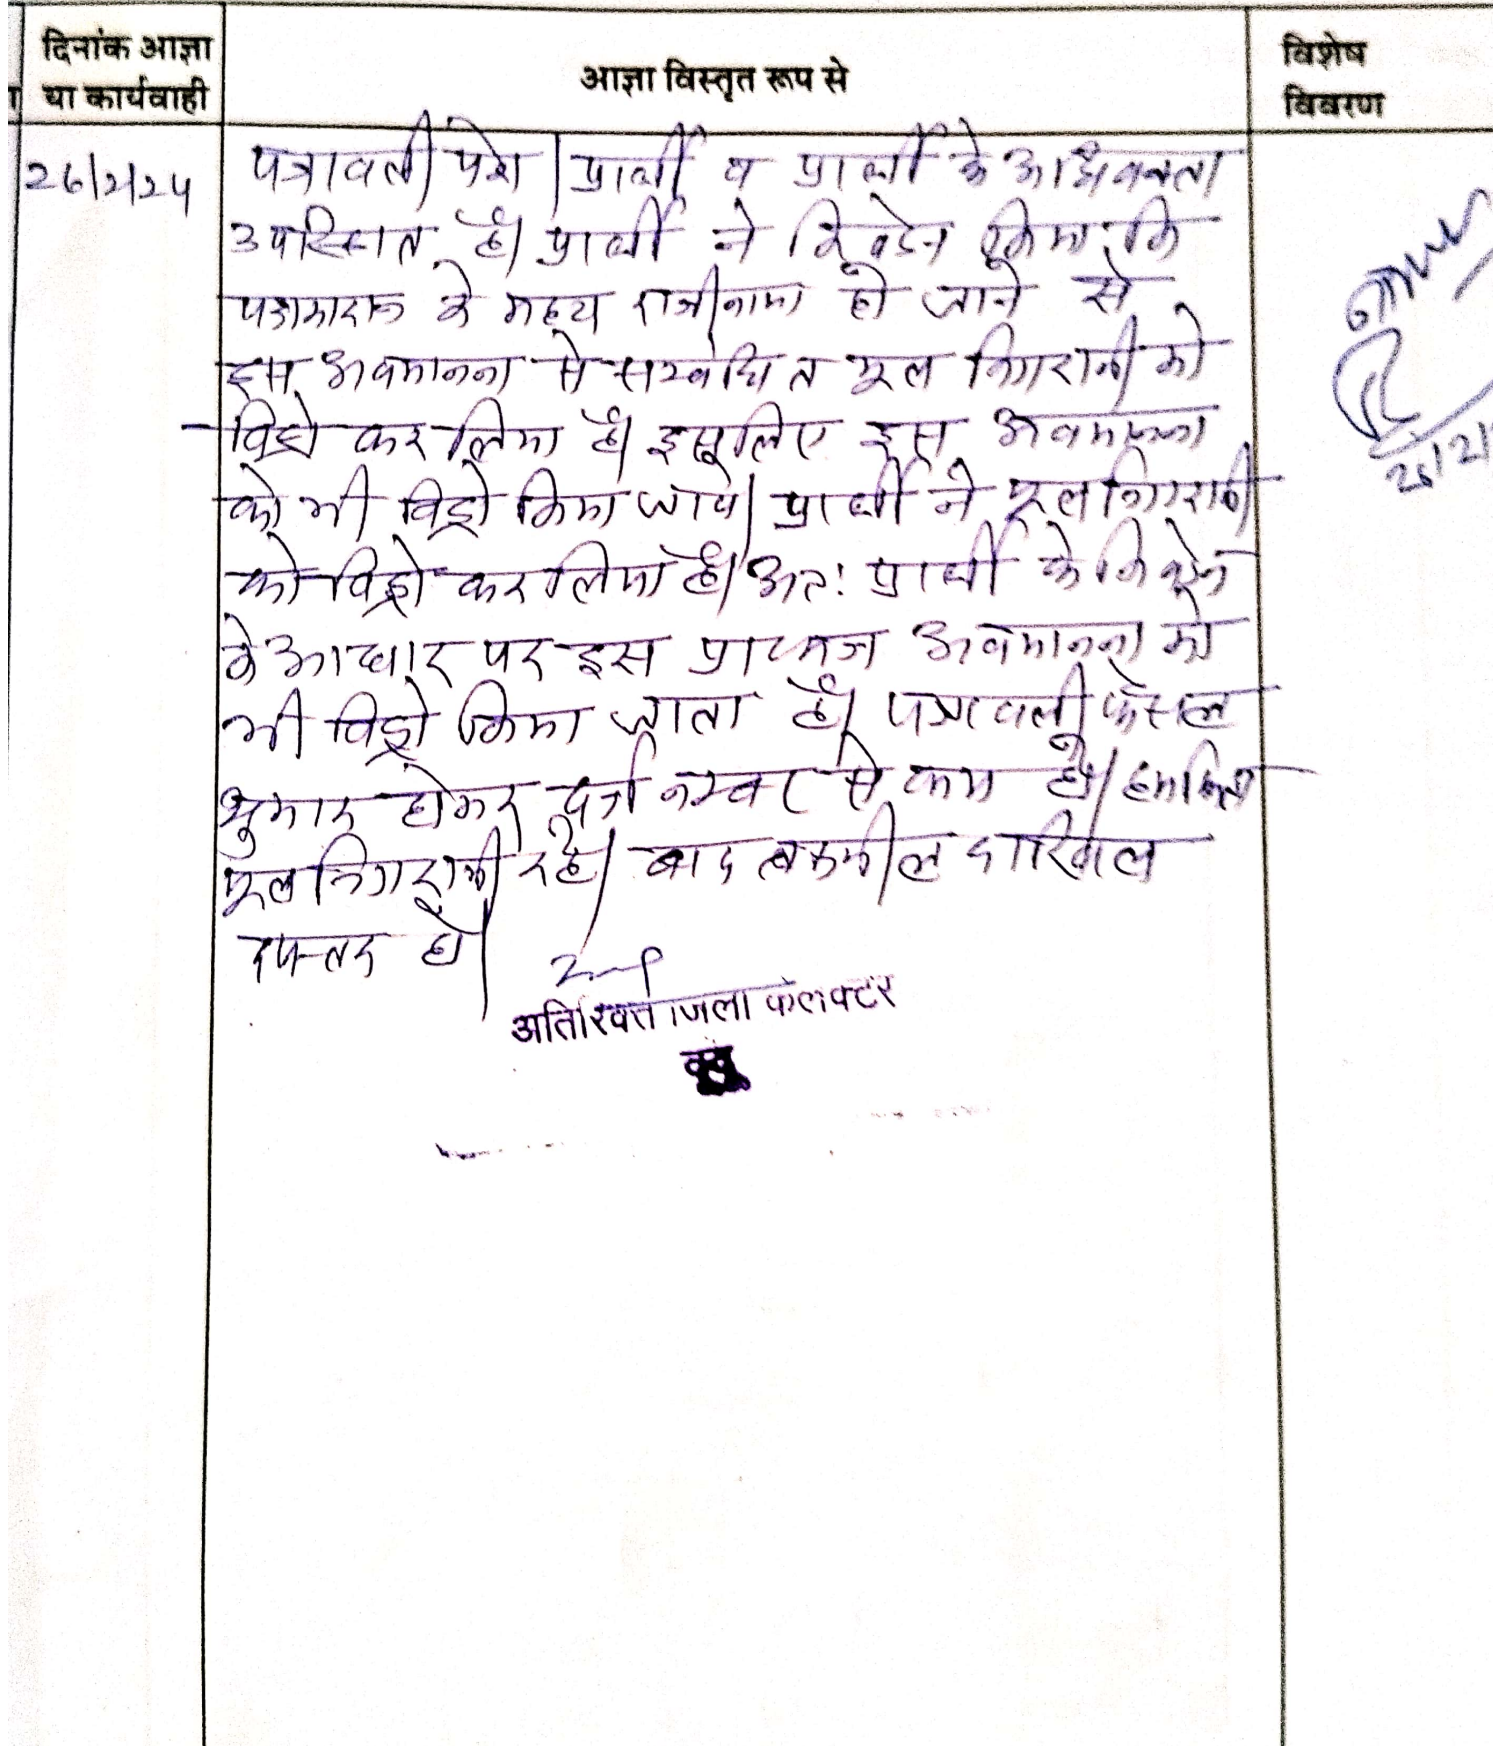 दिनांक आज्ञा
या कार्यवाही
आज्ञा विस्तृत रूप से
विशेष
विवरण
26/2/24
पत्रावली पेश। प्रार्थी व प्रार्थी के अधिवक्ता
उपस्थित है। प्रार्थी ने निवेदन किया कि
पक्षकारान के मध्य राजीनामा हो जाने से
इस अवमानना से सम्बंधित मूल निगरानी को
विड्रो कर लिया है। इसलिए इस अवमानना
को भी विड्रो किया जावे। प्रार्थी ने मूल निगरानी
को विड्रो कर लिया है। अतः प्रार्थी के निवेदन
के आधार पर इस प्रा०पत्र अवमानना को
भी विड्रो किया जाता है। पत्रावली फैसल
शुमार होकर दर्ज नम्बर से कम हो।
मूल निगरानी रहे। बाद तकमील दाखिल
दफ्तर हो।
अतिरिक्त जिला कलक्टर
26/2/